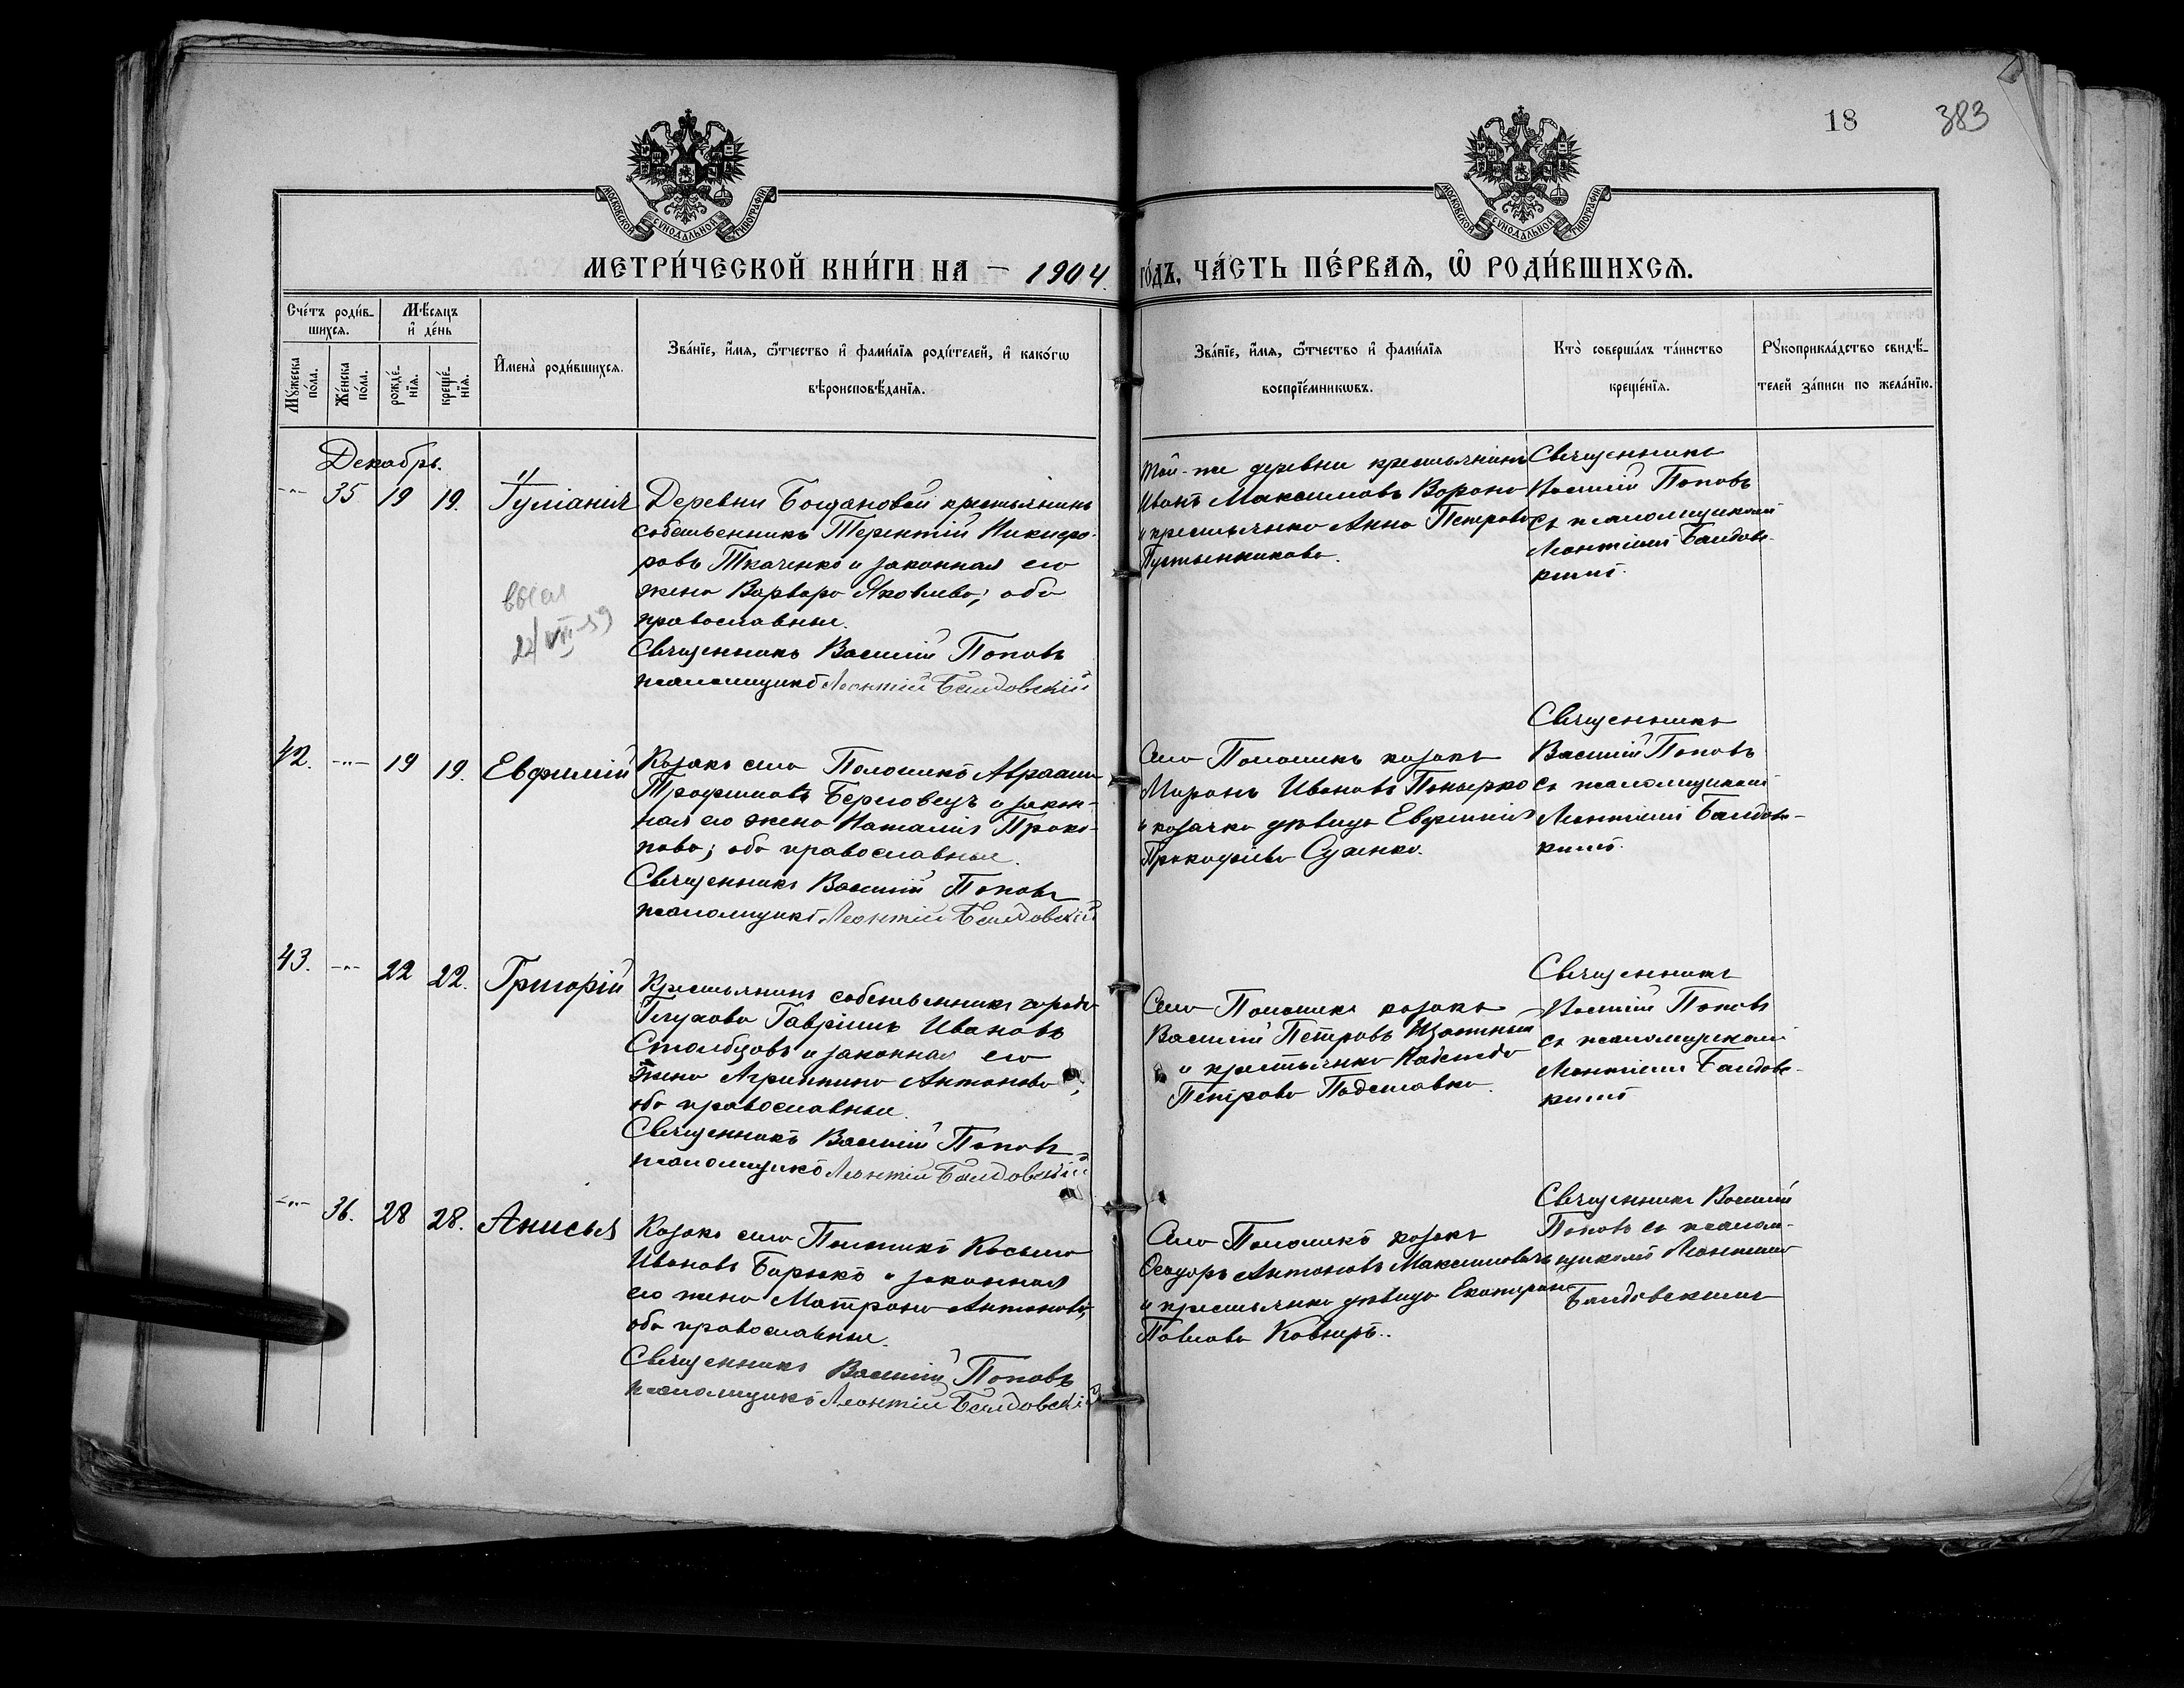 18 383
МОСКОВСКОЙ СѴНОДАЛЬНОЙ ТИПОГРАФІИ
МОСКОВСКОЙ СѴНОДАЛЬНОЙ ТИПОГРАФІИ
МЕТРИ́ЧЕСКОЙ КНИ́ГИ НА – 1904 ГО́ДЪ, ЧА́СТЬ ПЕ́РВАѦ, Ѿ РОДИ́ВШИХСѦ.
Сче́тъ роди́в-
шихсѧ.
Мꙋжеска по́ла.
Же́нска по́ла.
Мѣ́сѧцъ
и҆ де́нь
рожде́-
нїѧ.
креще́-
нїѧ.
И҆мена̀ роди́вшихсѧ.
Зва́нїе, и҆́мѧ, ѻ҆́тчество и҆ фами́лїѧ роди́телей, и҆ како́гѡ
вѣроисповѣ́данїѧ.
Зва́нїе, и҆́мѧ, ѻ҆́тчество и҆ фами́лїѧ
воспрїе́мникѡвъ.
Кто̀ соверша́лъ та́инство
креще́нїѧ.
Рꙋкоприкла́дство свидѣ́-
телей за́писи по жела́нїю.
Декабрь.
-"- 35 19 19. Іуліанія
Деревни Богдановой крестьянинъ
собственникъ Терентій Никифо-
ровъ Ткаченко и законная его
жена Варвара Яковлева; оба
православные.
Священникъ Василій Поповъ
псаломщикъ Леонтій Балдовскій
Той-же деревни крестьянинъ
Иванъ Максимовъ Ворона
и крестьянка Анна Петрова
Пустынникова.
Священникъ
Василій Поповъ
съ псаломщикомъ
Леонтіемъ Балдовс-
кимъ.
22/VII-59
42. -"- 19 19. Евфимій
Козакъ села Полошкъ Авраамъ
Трофимовъ Береговецъ и закон-
ная его жена Наталія Проко-
пова; оба православные.
Священникъ Василій Поповъ
псаломщикъ Леонтій Балдовскій
Села Полошкъ козакъ
Миронъ Ивановъ Понырко
и козачка дѣвица Евфимія
Прокофіева Сусенко.
Священникъ
Василій Поповъ
съ псаломщикомъ
Леонтіемъ Балдовс-
кимъ.
43. -"- 22 22. Григорій
Крестьянинъ собственникъ города
Глухова Гавріилъ Ивановъ
Столбцовъ и законная его
жена Агриппина Антонова;
оба православные.
Священникъ Василій Поповъ
псаломщикъ Леонтій Балдовскій
Села Полошкъ козакъ
Василій Петровъ
и крестьянка Надежда
Петрова Подставка.
Священникъ
Василій Поповъ
съ псаломщикомъ
Леонтіемъ Балдовс-
кимъ
-"- 36. 28 28. Анисья
Козакъ села Полошкъ Косьма
Ивановъ Бирюкъ и законная
его жена Матрона Антонова;
оба православные.
Священникъ Василій Поповъ
псаломщикъ Леонтій Балдовскій
Села Полошкъ козакъ
Ѳеодоръ Антоновъ Максимовичъ
и крестьянка дѣвица Екатерина
Павлова Ковнеръ.
Священникъ Василій
Поповъ съ псалом-
щикомъ Леонтіемъ
Балдовскимъ